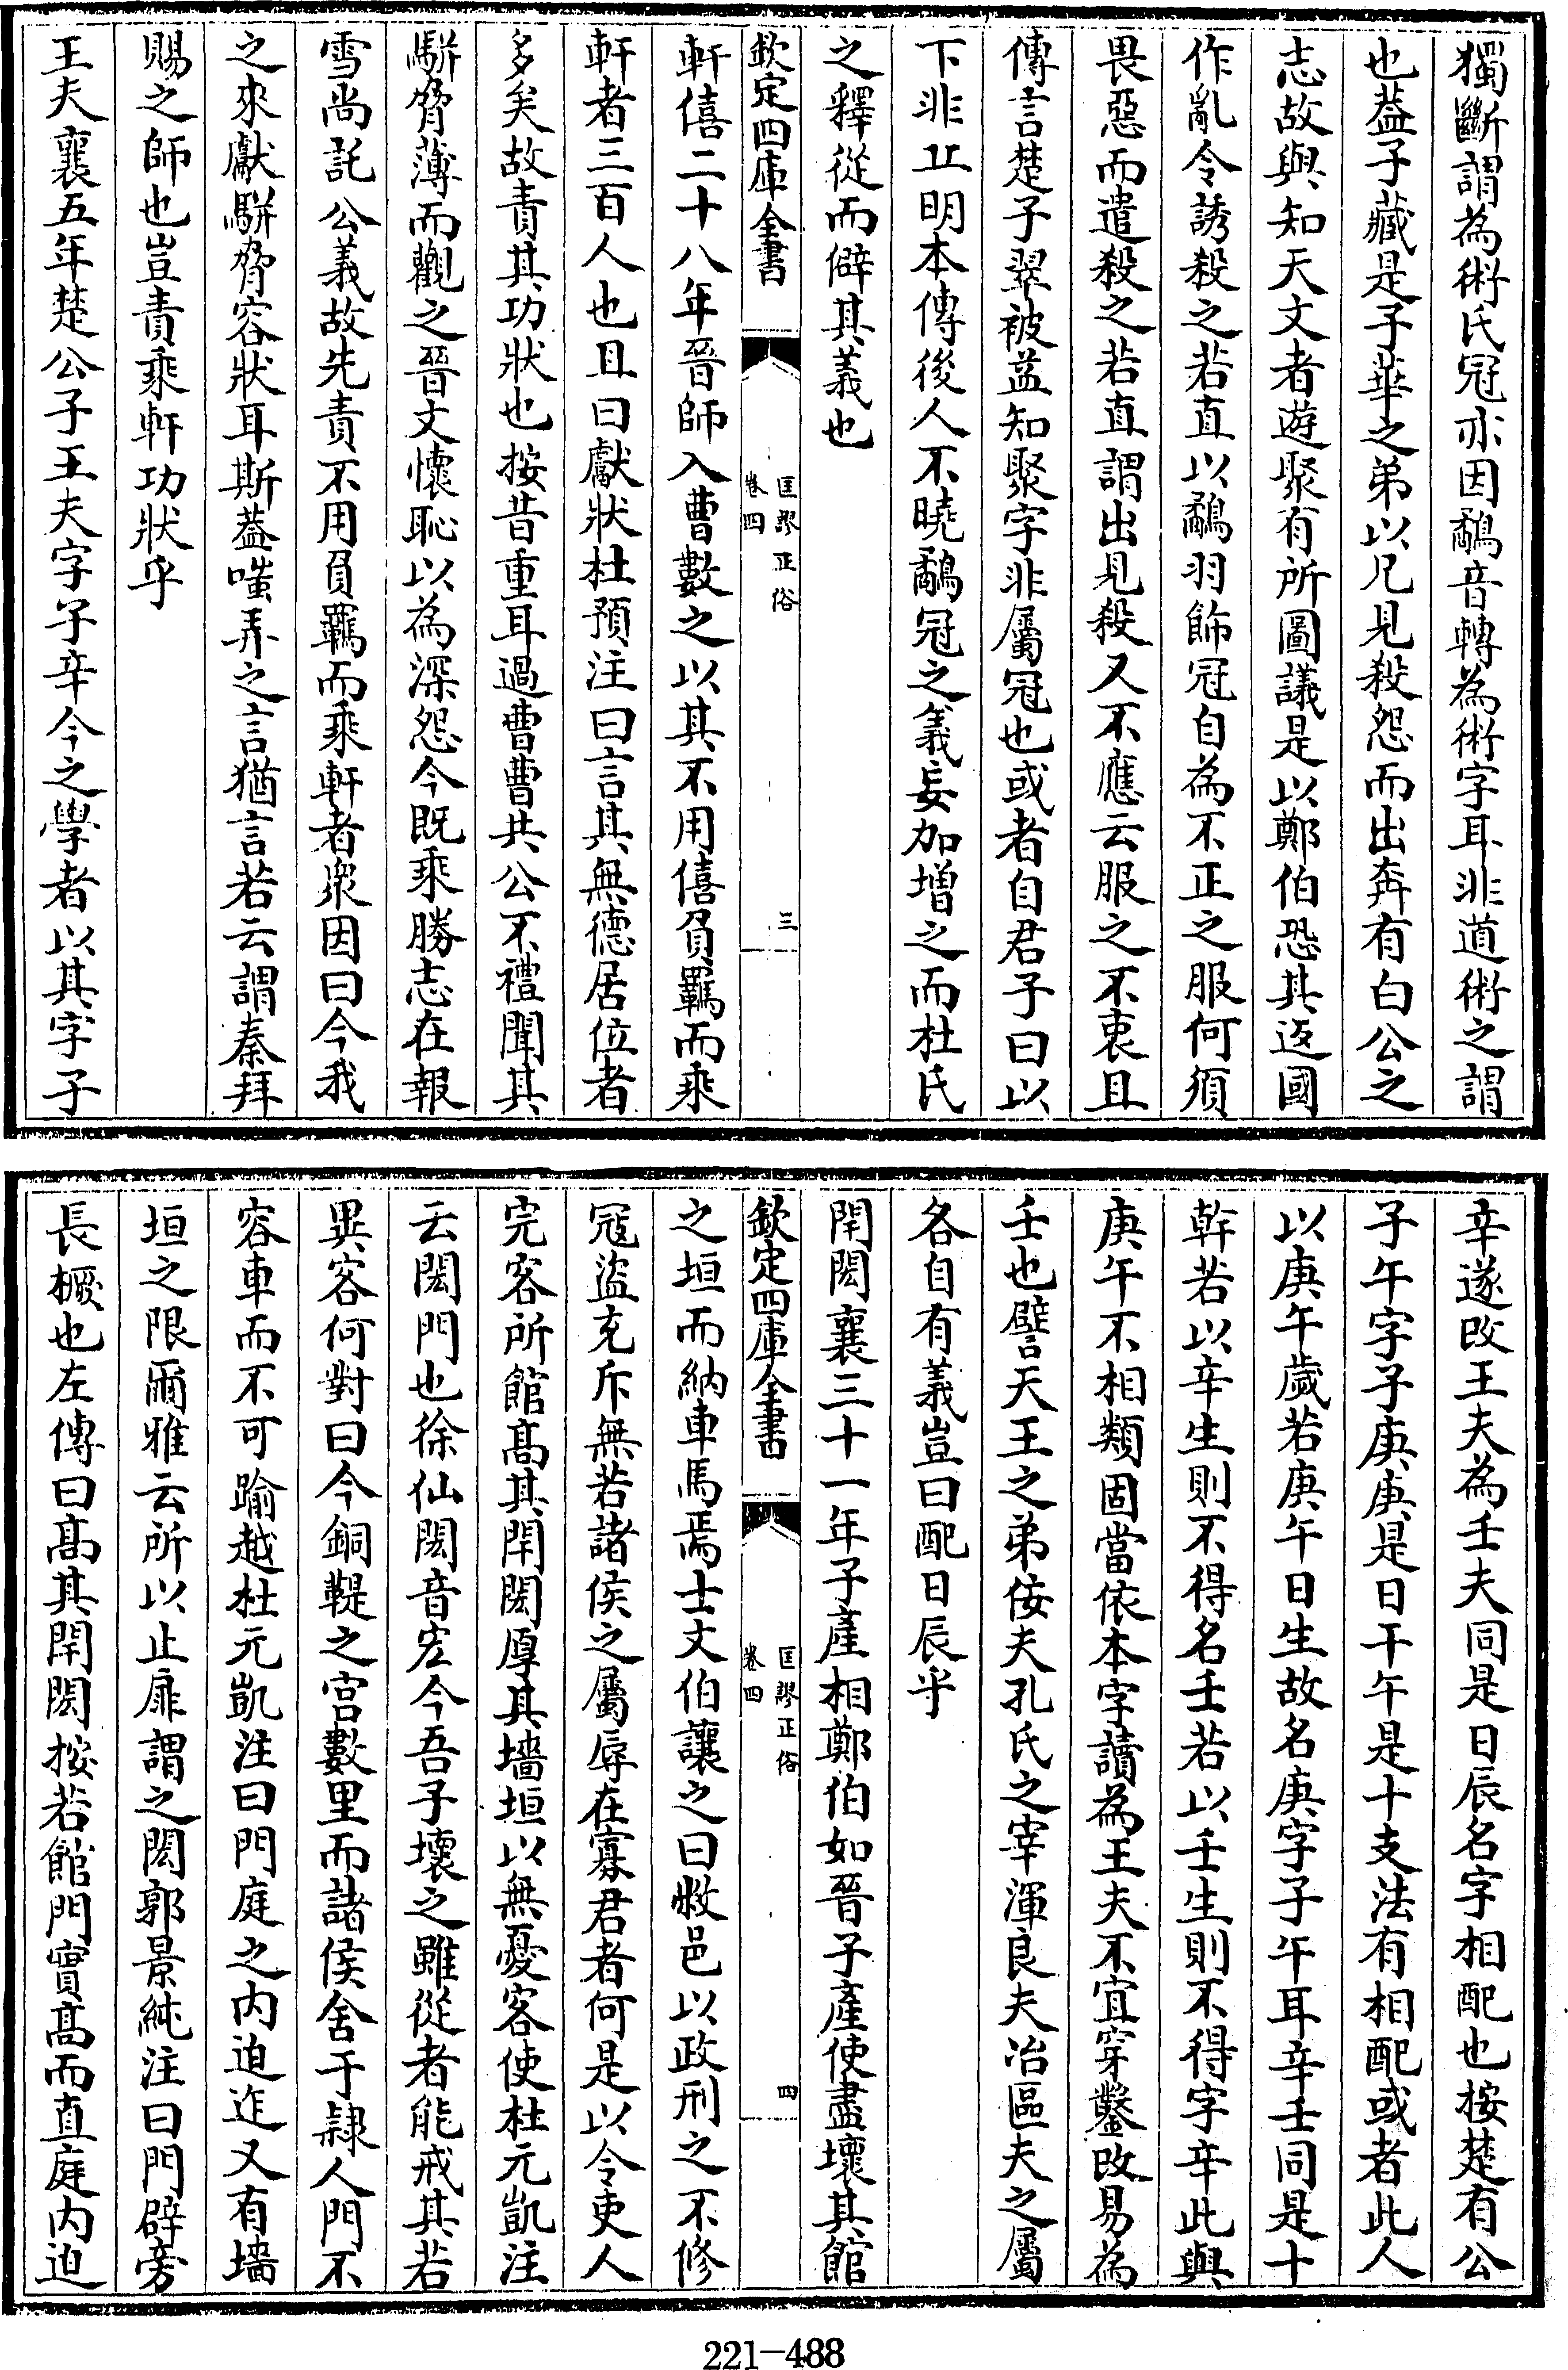 獨斷謂為術氏冠亦因鷸音轉為術字耳非道術之謂
也葢子藏是子華之弟以兄見殺怨而出奔有白公之
志故與知天文者遊聚有所圖議是以鄭伯恐其返國
作亂令誘殺之若直以鷸羽飾冠自為不正之服何須
畏惡而遣殺之若直謂出見殺又不應云服之不衷且
傳言楚子翠被益知聚字非屬冠也或者自君子曰以
下非丘明本傳後人不曉鷸冠之義妄加增之而杜氏
之釋從而僻其義也
欽定四庫全書
匡謬正俗
卷四
三
軒僖二十八年晉師入曹數之以其不用僖負羈而乘
軒者三百人也且曰獻狀杜預注曰言其無德居位者
多矣故責其功狀也按昔重耳過曹曹共公不禮聞其
駢脅薄而觀之晉文懷恥以為深怨今既乘勝志在報
雪尚託公義故先責不用負羈而乘軒者衆因曰今我
之來獻駢脅容狀耳斯葢嗤弄之言猶言若云謂秦拜
賜之師也豈責乘軒功狀乎
王夫襄五年楚公子王夫字子辛今之學者以其字子
辛遂改王夫為壬夫同是日辰名字相配也按楚有公
子午字子庚庚是日干午是十支法有相配或者此人
以庚午歲若庚午日生故名庚字子午耳辛壬同是十
幹若以辛生則不得名壬若以壬生則不得字辛此與
庚午不相類固當依本字讀為王夫不宜穿鑿改易為
壬也譬天王之弟佞夫孔氏之宰渾良夫冶區夫之屬
各自有義豈曰配日辰乎
閈閎襄三十一年子產相鄭伯如晉子產使盡壞其館
欽定四庫全書
匡謬正俗
卷四
四
之垣而納車馬焉士文伯讓之曰敝邑以政刑之不修
冦盜充斥無若諸侯之屬辱在寡君者何是以令吏人
完客所館髙其閈閎厚其墻垣以無憂客使杜元凱注
云閎門也徐仙閎音宏今吾子壞之雖從者能戒其若
異客何對曰今銅鞮之宫數里而諸侯舍于隷人門不
容車而不可踰越杜元凱注曰門庭之内迫迮又有墻
垣之限爾雅云所以止扉謂之閎郭景純注曰門辟旁
長橛也左傳曰髙其閈閎按若館門實髙而直庭内迫
221-488